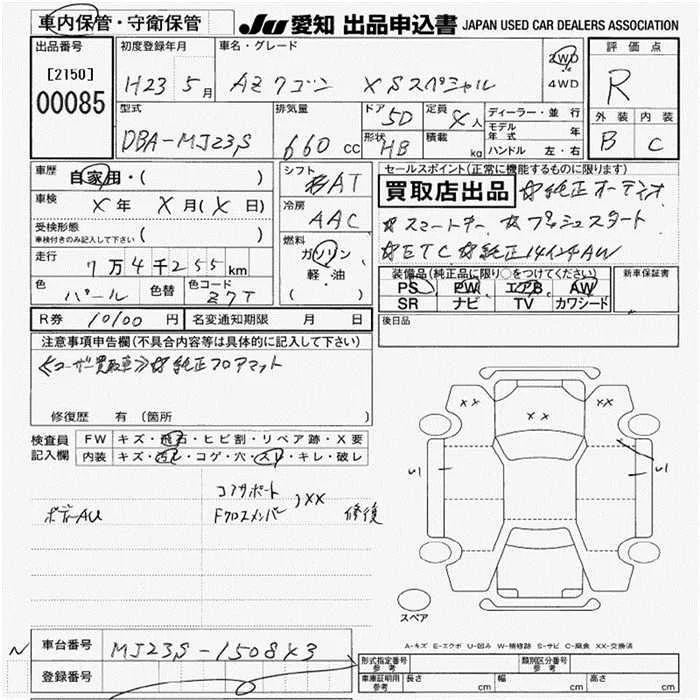 車内保管・守衛保管
JU 愛知 出品申込書 JAPAN USED CAR DEALERS ASSOCIATION
出品番号 初度登録年月 車名・グレード 2WD 評価点
[2150] H23 5月 AZワゴン XSスペシャル 4WD R
00085
型式 排気量 ドア 5D 定員 4人 ディーラー・並行 外装 内装
DBA-MJ23S 660cc 形状 HB 積載 kg モデル年式 年 B C
ハンドル 左・右
車歴 自家用・( ) シフト AT セールスポイント(正常に機能するものに限ります)
車検 X年 X月(X日) 冷房 AAC 買取店出品 ☆純正オーディオ
受検形態 ( ) ☆スマートキー ☆プッシュスタート
車検付きのみ記入して下さい
燃料 ガソリン ☆ETC ☆純正14インチAW
走行 7万4千255km 軽・油 装備品(純正品に限り○をつけてください) 新車保証書
色 パール 色替 色コード Z7T ( ) PS PW エアB AW
SR ナビ TV カワシード
R券 10100円 名変通知期限 月 日 後日品
注意事項申告欄(不具合内容等は具体的に記入して下さい)
≪ユーザー買取車≫ ☆純正フロアマット
修復歴 有(箇所
検査員 FW キズ・飛石・ヒビ割・リペア跡・X要
記入欄 内装 キズ・汚レ・コゲ・穴・スリ・キレ・破レ
XX XX XX
コアサポート
ボデーAU Fクロスメンバー )XX 修復
スペア
A-キズ E-エクボ U-凹み W-補修跡 S-サビ C-腐食 XX-交換済
N 車台番号 MJ23S-1508X3 形式指定番号 参考 類別区分番号 参考
登録番号 車庫証明用 参考 長さ cm 幅 cm 高さ cm